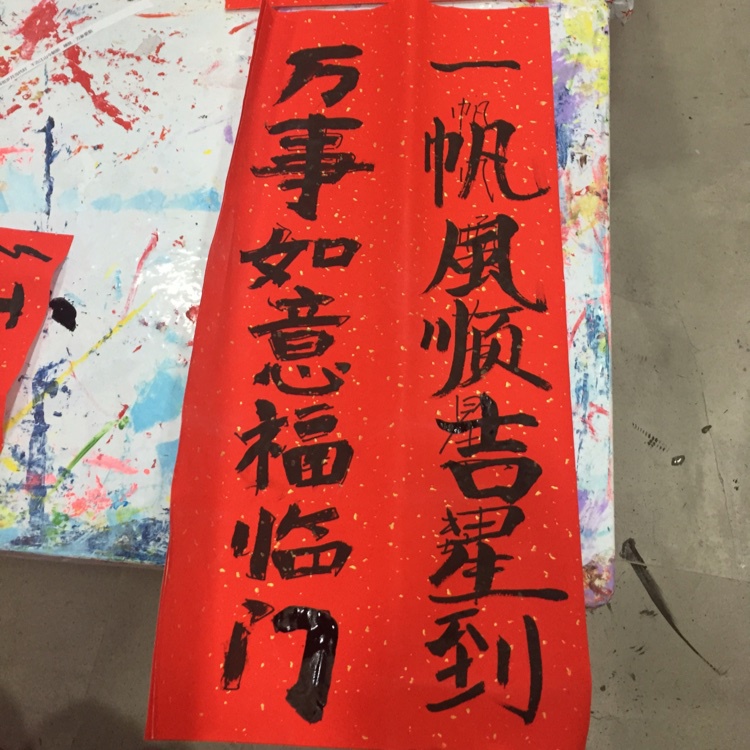 一帆风顺吉星到
万事如意福临门